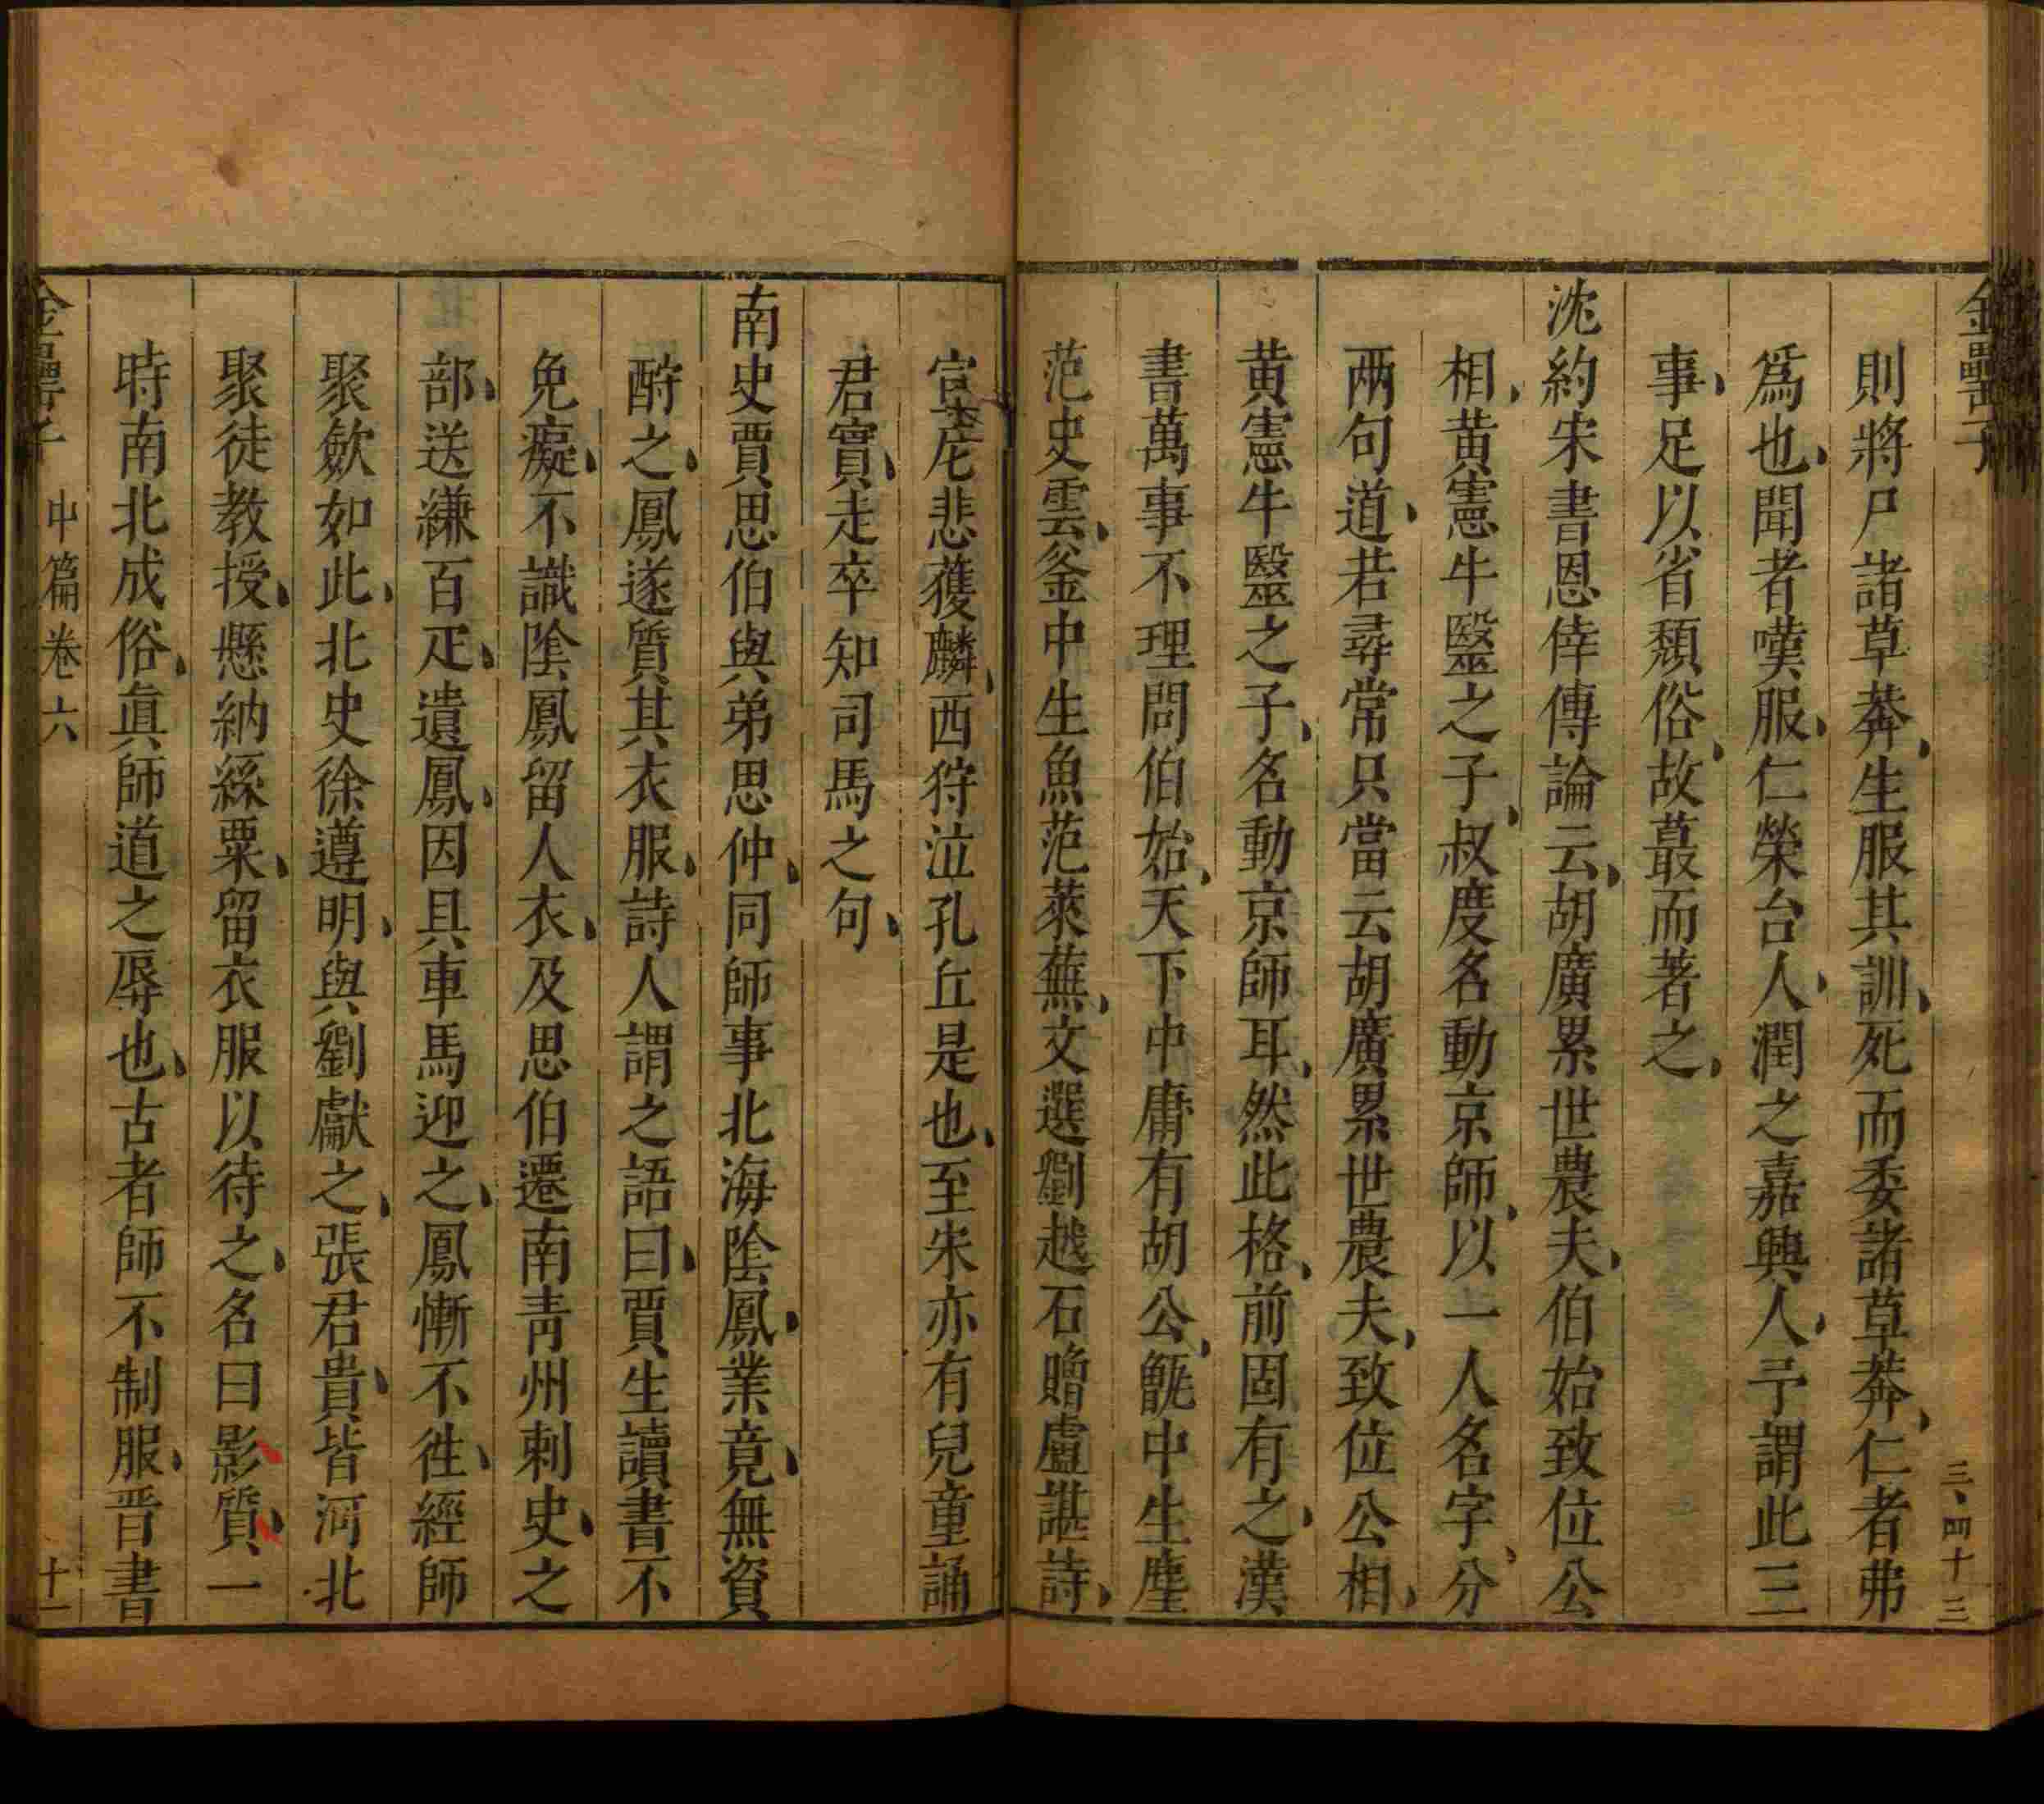 金罍子
三四十三
則將尸諸草莾生服其訓死而委諸草莾仁者弗
爲也聞者嘆服仁榮台人潤之嘉興人予謂此三
事足以省頹俗故蕞而著之
沈約宋書恩倖傳論云胡廣累世農夫伯始致位公
相黄憲牛毉之子叔度名動京師以一人名字分
两句道若尋常只當云胡廣累世農夫致位公相
黄憲牛毉之子名動京師耳然此格前固有之漢
書萬事不理問伯始天下中庸有胡公甑中生塵
范史雲釜中生魚范萊蕪文選劉越石贈盧諶詩
宣尼悲獲麟西狩泣孔丘是也至宋亦有兒童誦
君實走卒知司馬之句
南史賈思伯與弟思仲同師事北海隂鳳業竟無資
酧之鳳遂質其衣服詩人謂之語曰賈生讀書不
免癡不識隂鳳留人衣及思伯遷南青州刺史之
部送縑百疋遺鳳因具車馬迎之鳳慚不徃經師
聚歛如此北史徐遵明與劉獻之張君貴皆河北
聚徒教授懸納絲粟留衣服以待之名曰影質一
時南北成俗眞師道之辱也古者師不制服晋書
金罍子
中篇卷六
十一